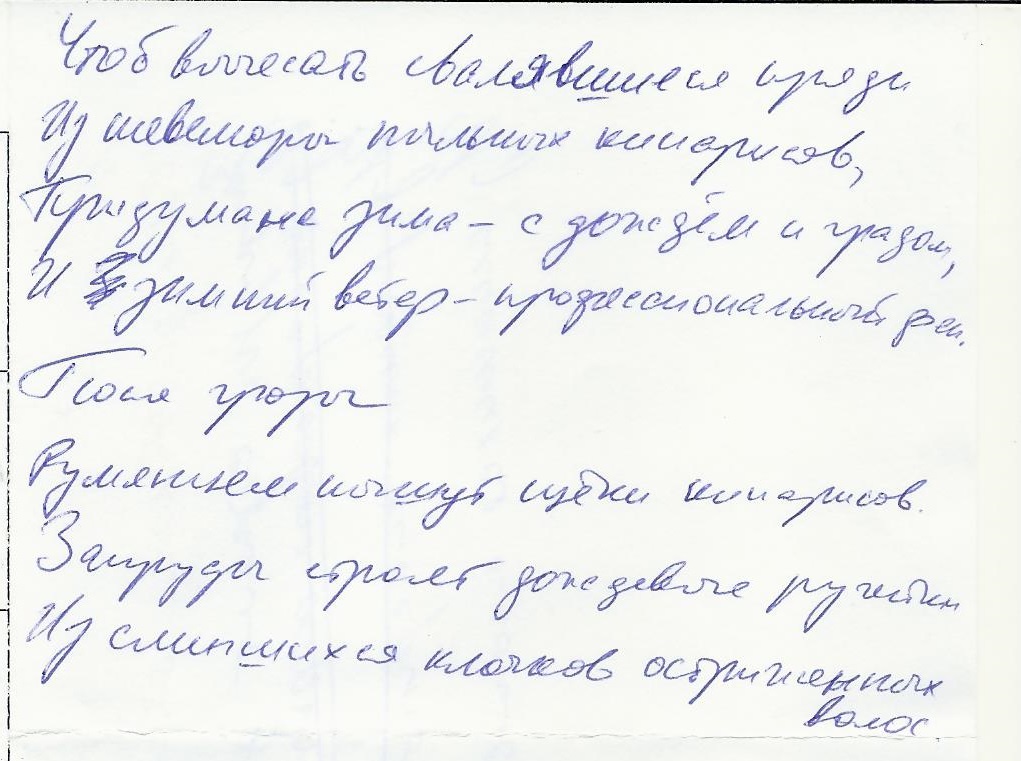 Чтоб вычесать свалявшиеся пряди
Из шевелюры пыльных кипарисов,
Придумана зима – с дождём и градом,
И зимний ветер – профессиональный фен.
После грозы
Румянцем пышут щёки кипарисов.
Запруды строят дождевые ручейки
Из слипшихся клочков остриженных
волос.